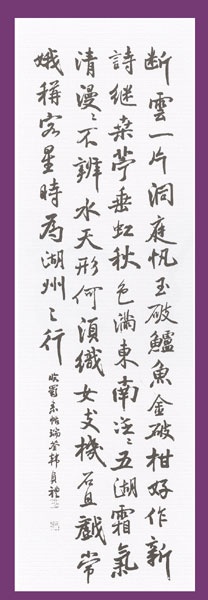 断雲一片洞庭帆玉破鱸魚金破柑好作新
詩継桑苧垂虹秋色滿東南泛〻五湖霜氣
清漫〻不辨水天形何須織女支機石且戲常
娥稱客星時為湖州之行
蜀素帖瑞韓貞禮